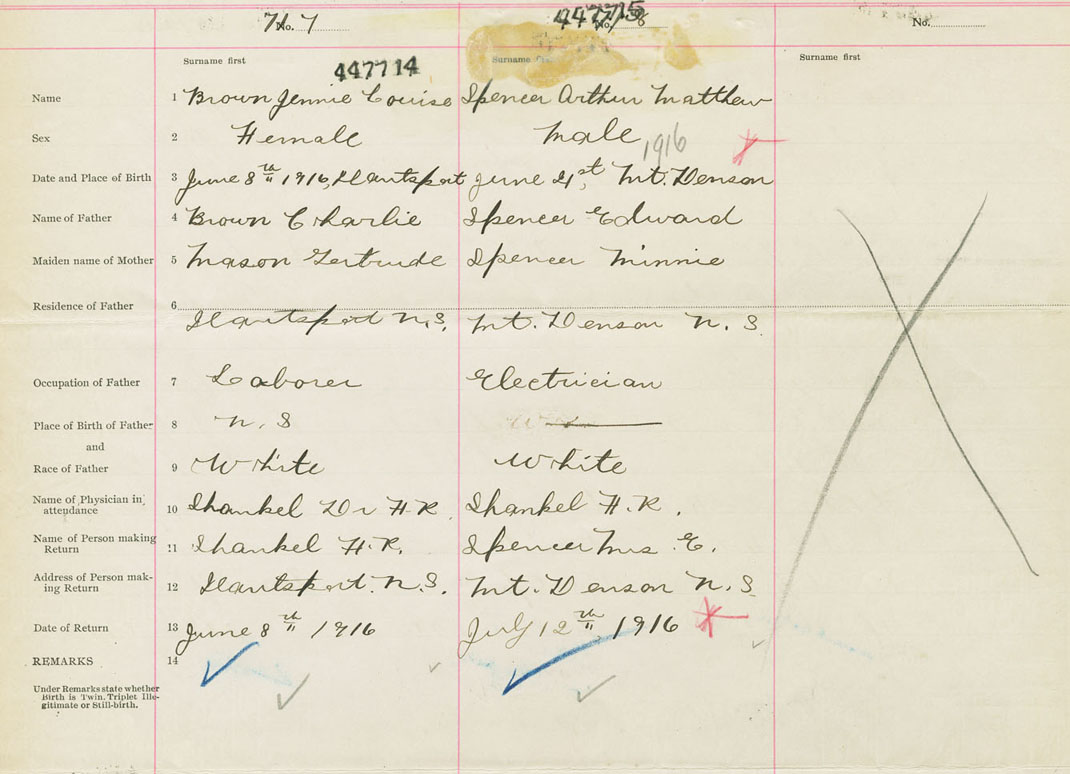 No. 7
No.
No.
Surname first
447714
Surname
Surname first
Name 1 Brown Jennie Louise Spencer Arthur Matthew
Sex 2 Female Male
1916
Date and Place of Birth 3 June 8th 1916, Hantsport June 21st, Mt. Denson
Name of Father 4 Brown Charlie Spencer Edward
Maiden name of Mother 5 Mason Gertrude Spencer Minnie
Residence of Father 6 Hantsport N.S. Mt. Denson N. S.
Occupation of Father 7 Laborer Electrician
Place of Birth of Father 8 N. S
and
Race of Father 9 White White
Name of Physician in attendance 10 Shankel Dr H. R. Shankel H. R.
Name of Person making Return 11 Shankel H. R. Spencer Mrs. E.
Address of Person mak-ing Return 12 Hantsport. N. S. Mt. Denson N. S.
Date of Return 13 June 8th 1916 July 12th 1916
REMARKS 14
Under Remarks state whether
Birth is Twin. Triplet Ille-
gitimate or Still-birth.